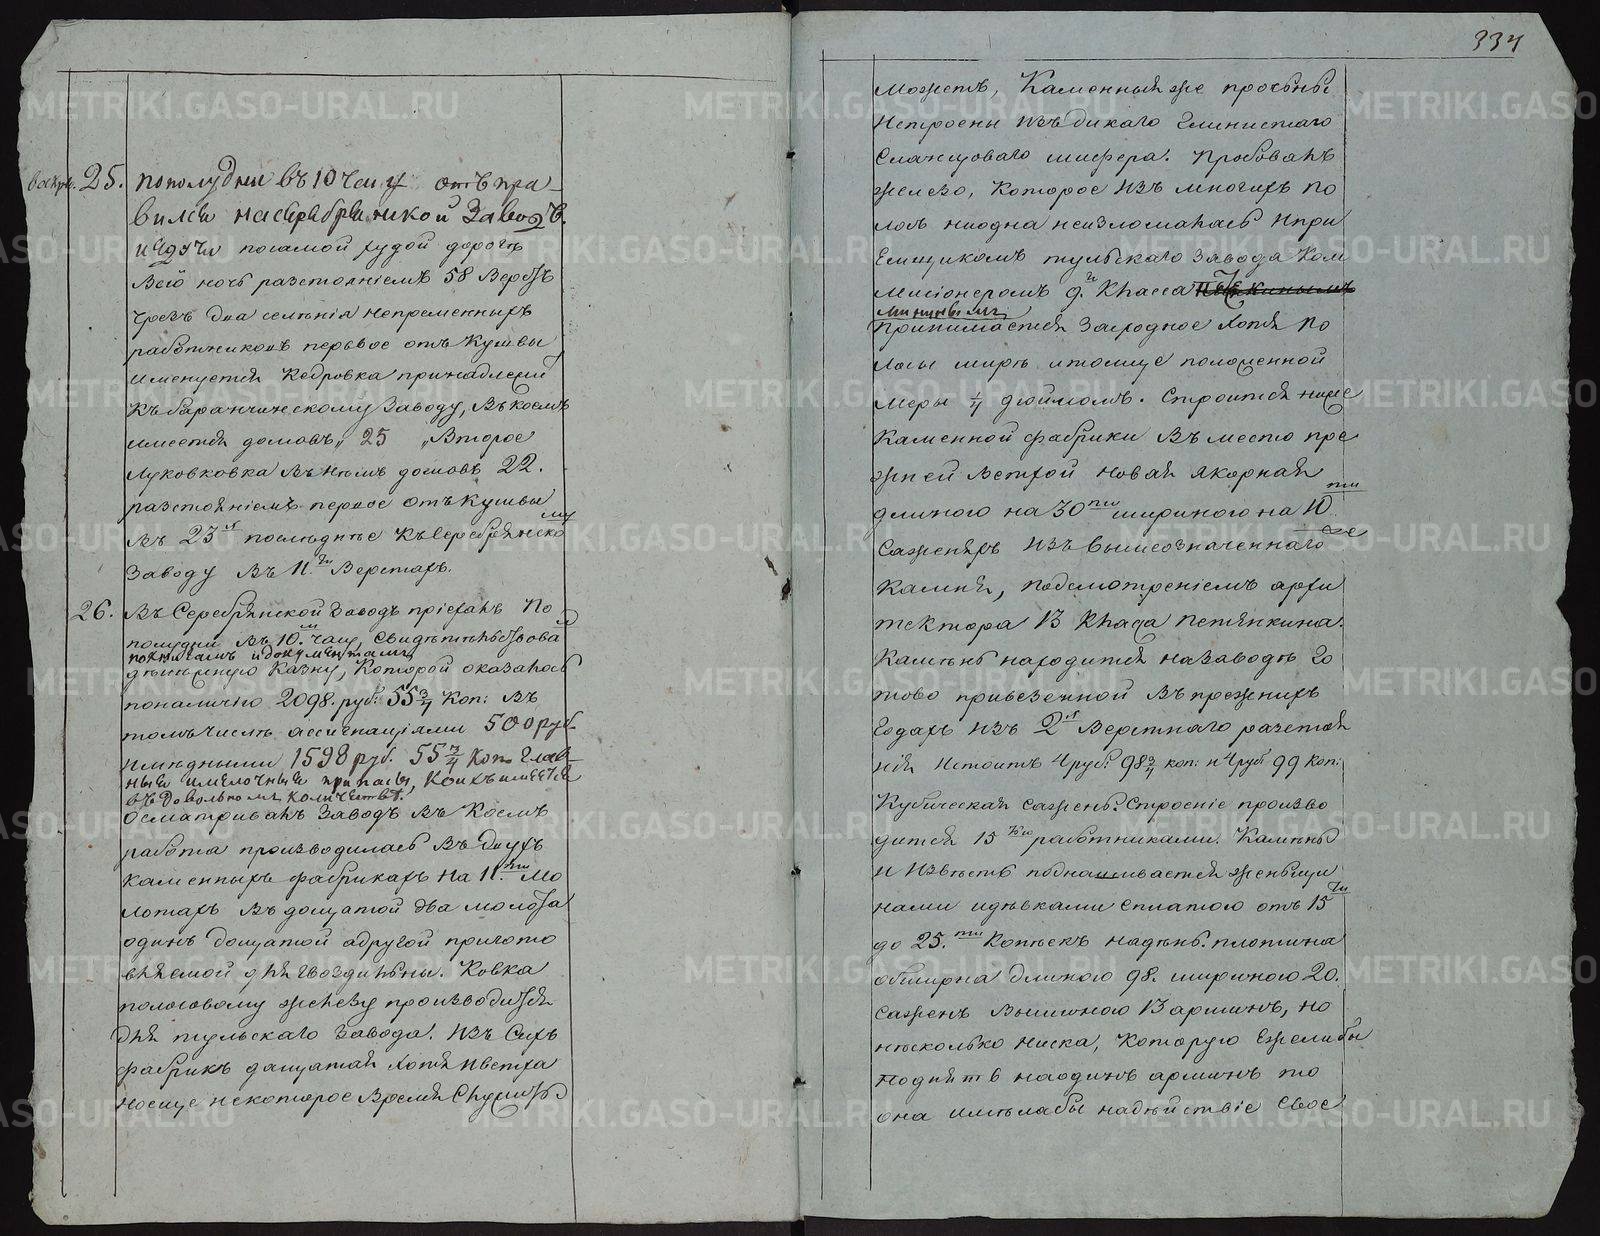 воскрес. 25. пополудни въ 10 часу отъпра-
вился насеребрянской заводъ.
иедучи посамой худой дороге
всю ночь разстояніемъ 58 верстъ
чрезъ два селенія непременныхъ
работниковъ первое отъ Кушвы
именуется Кедровка принадлежи
къ баранчинскому заводу, въ коемъ
имеется домовъ „ 25 „ Второе
Луковковка въ нѣмъ домовъ 22.
разстояніемъ первое отъ кушвы
въ 23 х последнѣе къ Серебрянско
му
заводу въ 11. ти верстахъ.
26. Въ Серебрянской заводъ пріехалъ по
полудни въ 10. м часу, свидѣтельствовалъ
покнигамъ идокументамъ
дѣнежную казну, которой оказалось
поналичію 2098. руб: 55 3/4 коп: въ
томъ числѣ ассигнаціями 500 руб
имѣдными 1598 руб. 55 3/4 коп глав-
ныя имѣлочныя припасы, коихъ имеется
въ довольномъ количествѣ.
осматривалъ заводъ въ коемъ
работа производилась въ двухъ
каменныхъ фабрикахъ на 11. ти мо
лотахъ въ дощатой два молота
одинъ дощатой адругой пригото
вляемой для гвоздильны. Ковка
полосовому железу производится
для тульскаго завода. изъ сихъ
фабрикъ дащатая хотя иветха
ноеще некоторое время служить
334
можетъ, Каменныя же прочны
истроены изъ дикаго глинистаго
сланцоваго шифера. Пробовалъ
железо, которое изъ многихъ по
лосъ ниодна неизломалась ипри
емщикомъ тульскаго завода ком
мисіонеромъ 9. го класса
Мининымъ
принимается заводное хотя по
лосы мирѣ итолще положенной
меры 1/4 дюймомъ. Строится ниже
каменной фабрики въместо пре
жней ветхой новая якорная
длиною на 30 ти шириною на 10.
ти
саженяхъ изъ вышеозначеннаго
же
камня, подсмотреніемъ архи
тектора 13 класа петенкина.
Каменъ находится назаводѣ го
тово привезенной въ прежнихъ
годахъ изъ 2 х верстнаго разстоя
нія истоитъ 4 руб: 98 3/4 коп: и 4 руб 99 коп:
Кубическая сажень. Строеніе произво
дится 15 ю работниками. Каменъ
и известь поднашивается женьщи
нами идѣвками сплатою отъ 15
ти
до 25. ти копѣекъ надѣнь. плотина
обширна длиною 98. шириною 20.
саженъ вышиною 13 аршинъ, но
нѣсколько ниска, которую ежелибы
поднятъ наодинъ аршинъ то
она имѣлабы надѣйствіе свое